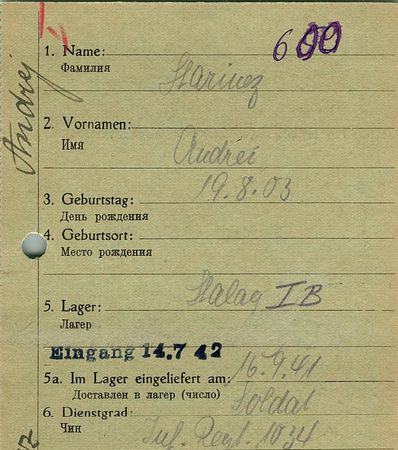 600
Andrej
1. Name: Starinez
Фамилия
2. Vornamen:
Имя
Andrei
19.8.03
3. Geburtstag:
День рождения
4. Geburtsort:
Место рождения
Stalag IB
5. Lager:
Лагер
Eingang 14.7 42
5a. Im Lager eingeliefert am: 16.9.41
Доставлен в лагер (число)
Soldat
6. Dienstgrad:
Чин
Inf. Regt. 1034